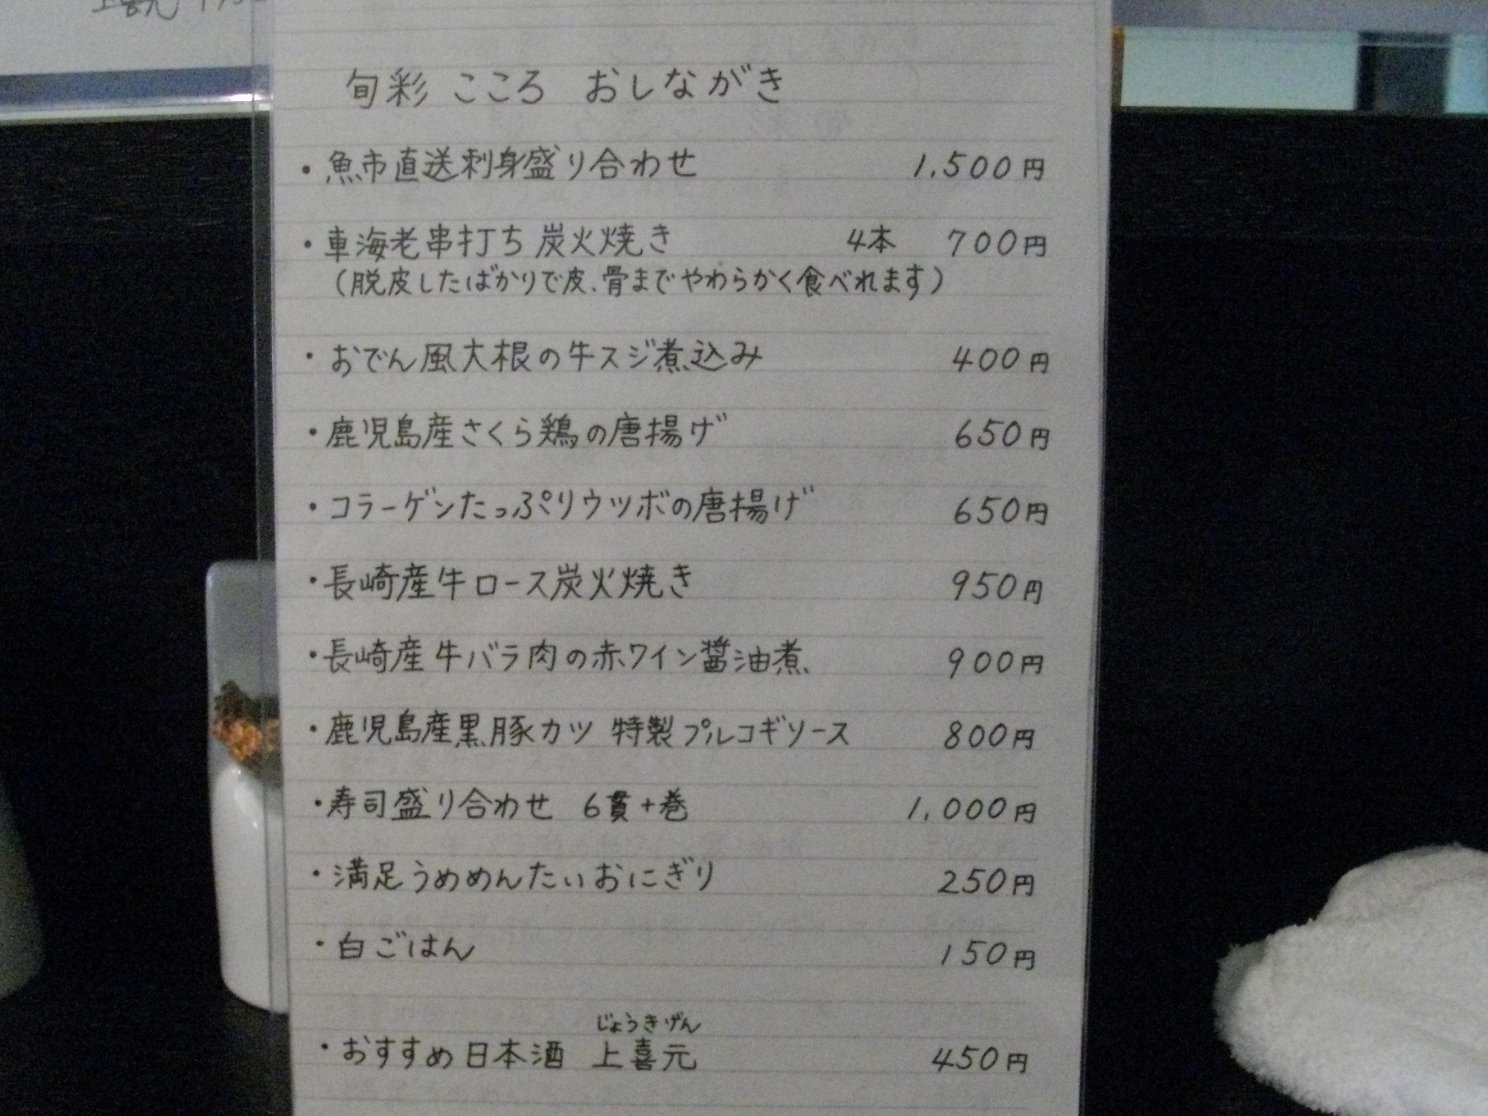 旬彩 こころ おしながき
・魚市直送刺身盛り合わせ 1,500円
・車海老串打ち炭火焼き 4本 700円
(脱皮したばかりで皮、骨までやわらかく食べれます)
・おでん風大根の牛スジ煮込み 400円
・鹿児島産さくら鶏の唐揚げ 650円
・コラーゲンたっぷりウツボの唐揚げ 650円
・長崎産牛ロース炭火焼き 950円
・長崎産牛バラ肉の赤ワイン醤油煮 900円
・鹿児島産黒豚カツ 特製プルコギソース 800円
・寿司盛り合わせ 6貫+巻 1,000円
・満足うめめんたいおにぎり 250円
・白ごはん 150円
じょうきげん
・おすすめ日本酒 上喜元 450円